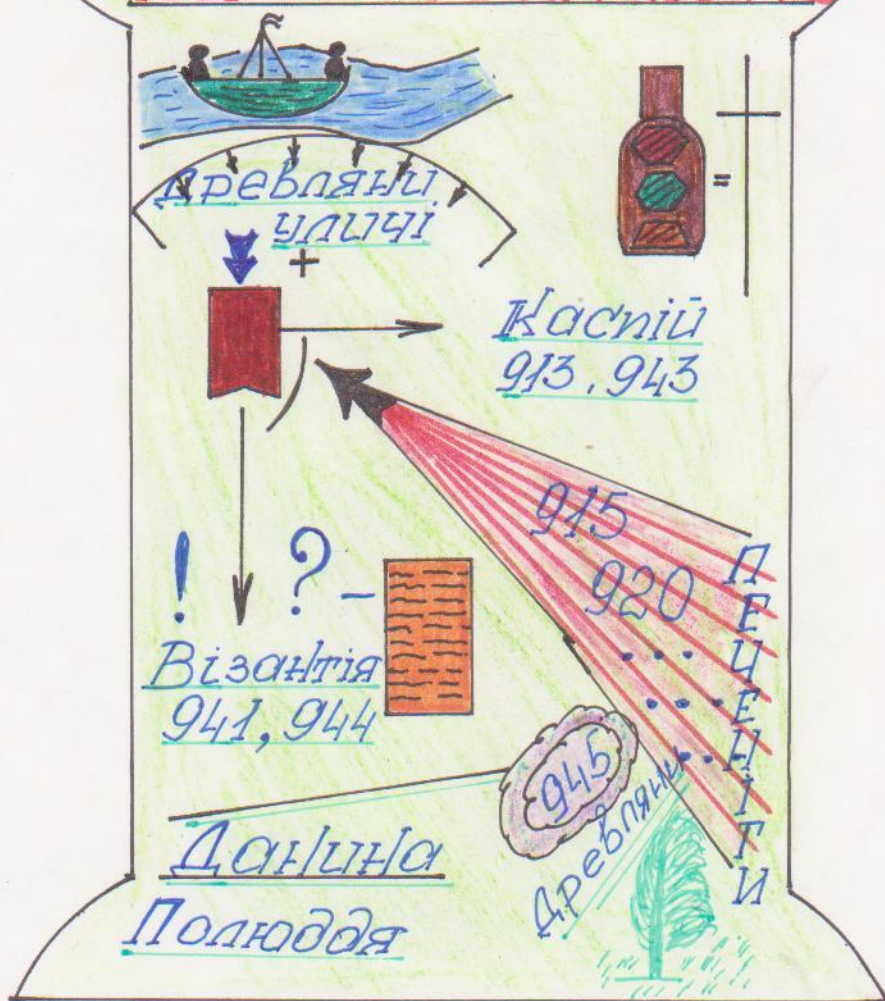 Древляни
уличі
+
=
Каспій
913, 943
915
920
ПЕЧЕНІГИ
! ? –
Візантія
941, 944
945
Древляни
Данина
Полюддя